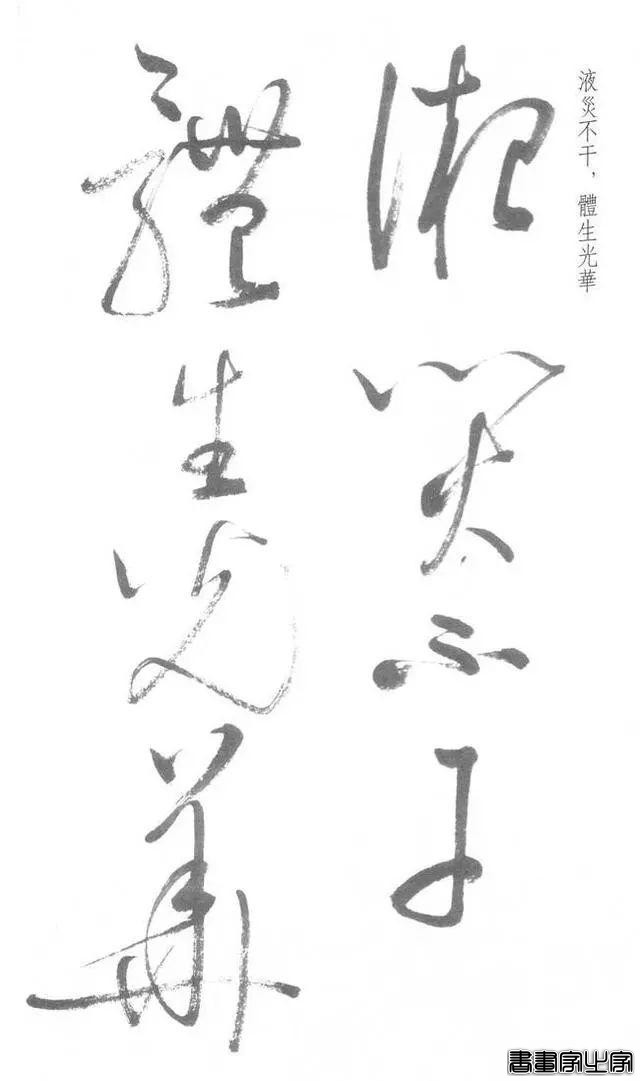 液災不干，體生光華
液災不干
體生光華
書畫家之家